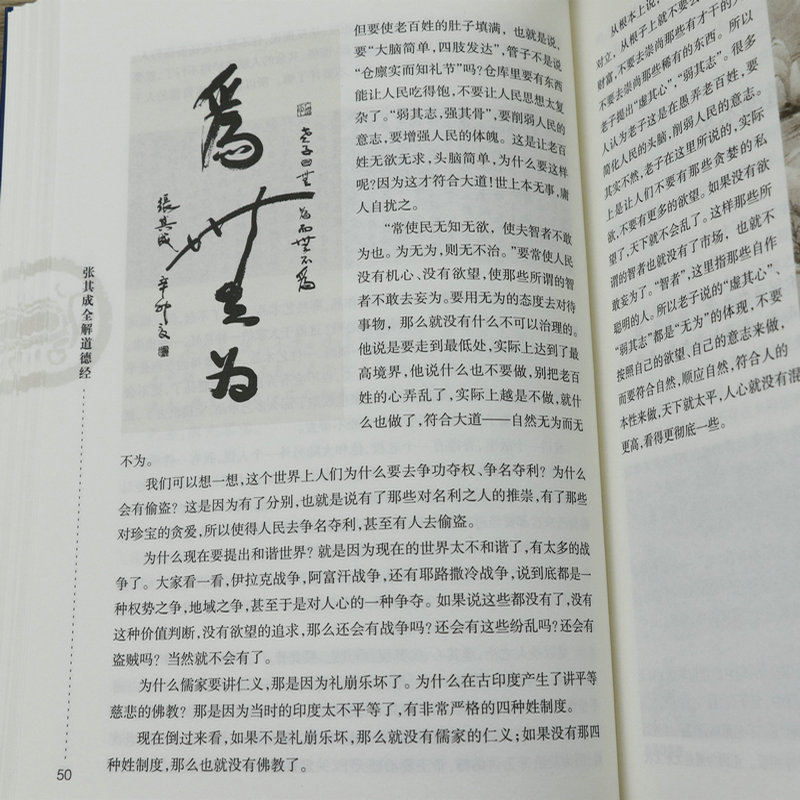 张其成全解道德经
50
爲
無
为
老子曰無为而無不為
張其成
但要使老百姓的肚子填满，也就是说，
要“大脑简单，四肢发达”，管子不是说
“仓廪实而知礼节”吗？仓库里要有东西
能让人民吃得饱，不要让人民思想太复
杂了。“弱其志，强其骨”，要削弱人民的
意志，要增强人民的体魄。这是让老百
姓无欲无求，头脑简单，为什么要这样
呢？因为这才符合大道！世上本无事，庸
人自扰之。
“常使民无知无欲，使夫智者不敢
为也。为无为，则无不治。”要常使人民
没有机心、没有欲望，使那些所谓的智
者不敢去妄为。要用无为的态度去对待
事物，那么就没有什么不可以治理的。
他说是要走到最低处，实际上达到了最
高境界，他说什么也不要做，别把老百
姓的心弄乱了，实际上越是不做，就什
么也做了，符合大道——自然无为而无
不为。
我们可以想一想，这个世界上人们为什么要去争功夺权、争名夺利？为什么
会有偷盗？这是因为有了分别，也就是说有了那些对名利之人的推崇，有了那些
对珍宝的贪爱，所以使得人民去争名夺利，甚至有人去偷盗。
为什么现在要提出和谐世界？就是因为现在的世界太不和谐了，有太多的战
争了。大家看一看，伊拉克战争，阿富汗战争，还有耶路撒冷战争，说到底都是一
种权势之争，地域之争，甚至于是对人心的一种争夺。如果说这些都没有了，没有
这种价值判断，没有欲望的追求，那么还会有战争吗？还会有这些纷乱吗？还会有
盗贼吗？当然就不会有了。
为什么儒家要讲仁义，那是因为礼崩乐坏了。为什么在古印度产生了讲平等
慈悲的佛教？那是因为当时的印度太不平等了，有非常严格的四种姓制度。
现在倒过来看，如果不是礼崩乐坏，那么就没有儒家的仁义；如果没有那四
种姓制度，那么也就没有佛教了。
从根本上说，
对立，从根子上就不要去
财富，不要去崇尚那些有才干的
不要去崇尚那些稀有的东西。所以
老子提出“虚其心”，“弱其志”。很多
人认为老子这是在愚弄老百姓，要
简化人民的头脑，削弱人民的意志。
其实不然，老子在这里所说的，实际
上是让人们不要有那些贪婪的私
欲，不要有更多的欲望。如果没有欲
望了，天下就不会乱了。这样那些所
谓的智者也就没有了市场，也就不
敢妄为了。“智者”，这里指那些自作
聪明的人。所以老子说的“虚其心”、
“弱其志”都是“无为”的体现，不要
按照自己的欲望、自己的意志来做，
而要符合自然，顺应自然，符合人的
本性来做，天下就太平，人心就没有混
更高，看得更彻底一些。